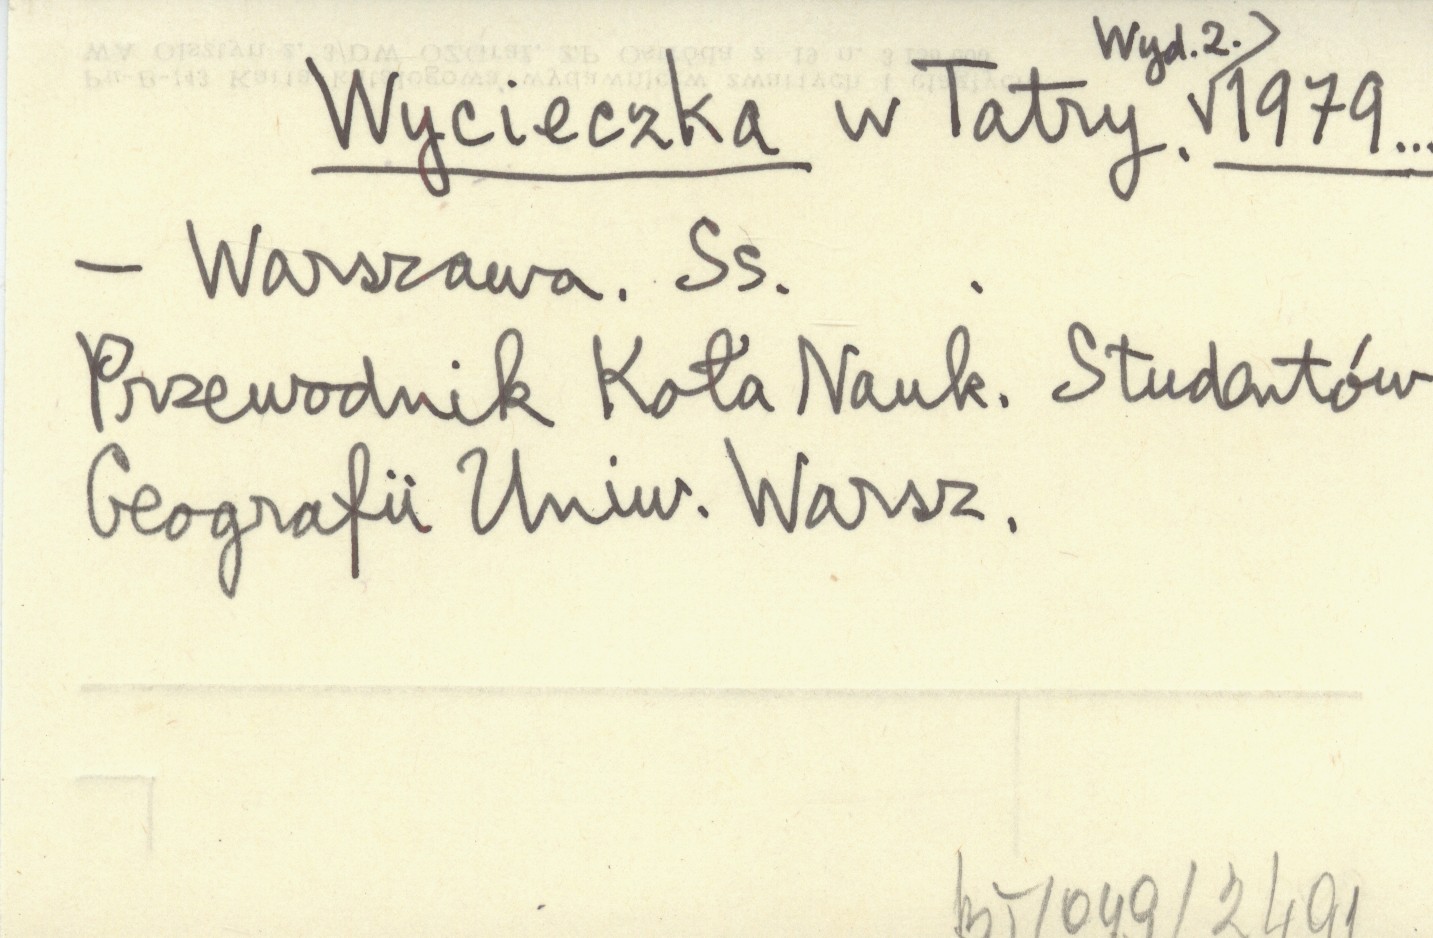 Wyd. 2.>
Wycieczka w Tatry. √1979...
— Warszawa. Ss. .
Przewodnik Koła Nauk. Studentów
Geografii Uniw. Warsz.
/049/2491